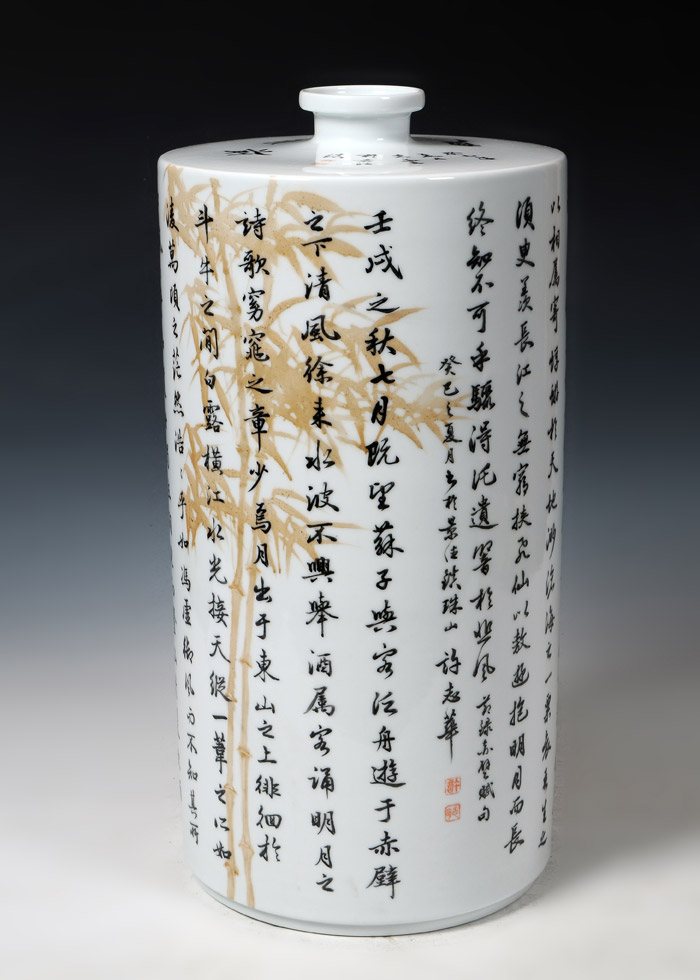 壬戌之秋七月既望蘇子與客泛舟遊于赤壁
之下清風徐來水波不興舉酒属客誦明月之
詩歌窈窕之章少焉月出于東山之上徘徊於
斗牛之間白露横江水光接天縱一葦之所如
凌萬頃之茫然浩乎如馮虚御風而不知其所
以相属寄蜉蝣於天地渺滄海之一粟哀吾生之
須臾羨長江之無窮挟飛仙以敖遊抱明月而長
終知不可乎驟得託遺響於悲風前録赤壁賦句
癸巳之夏月書於景德鎮珠山許志華